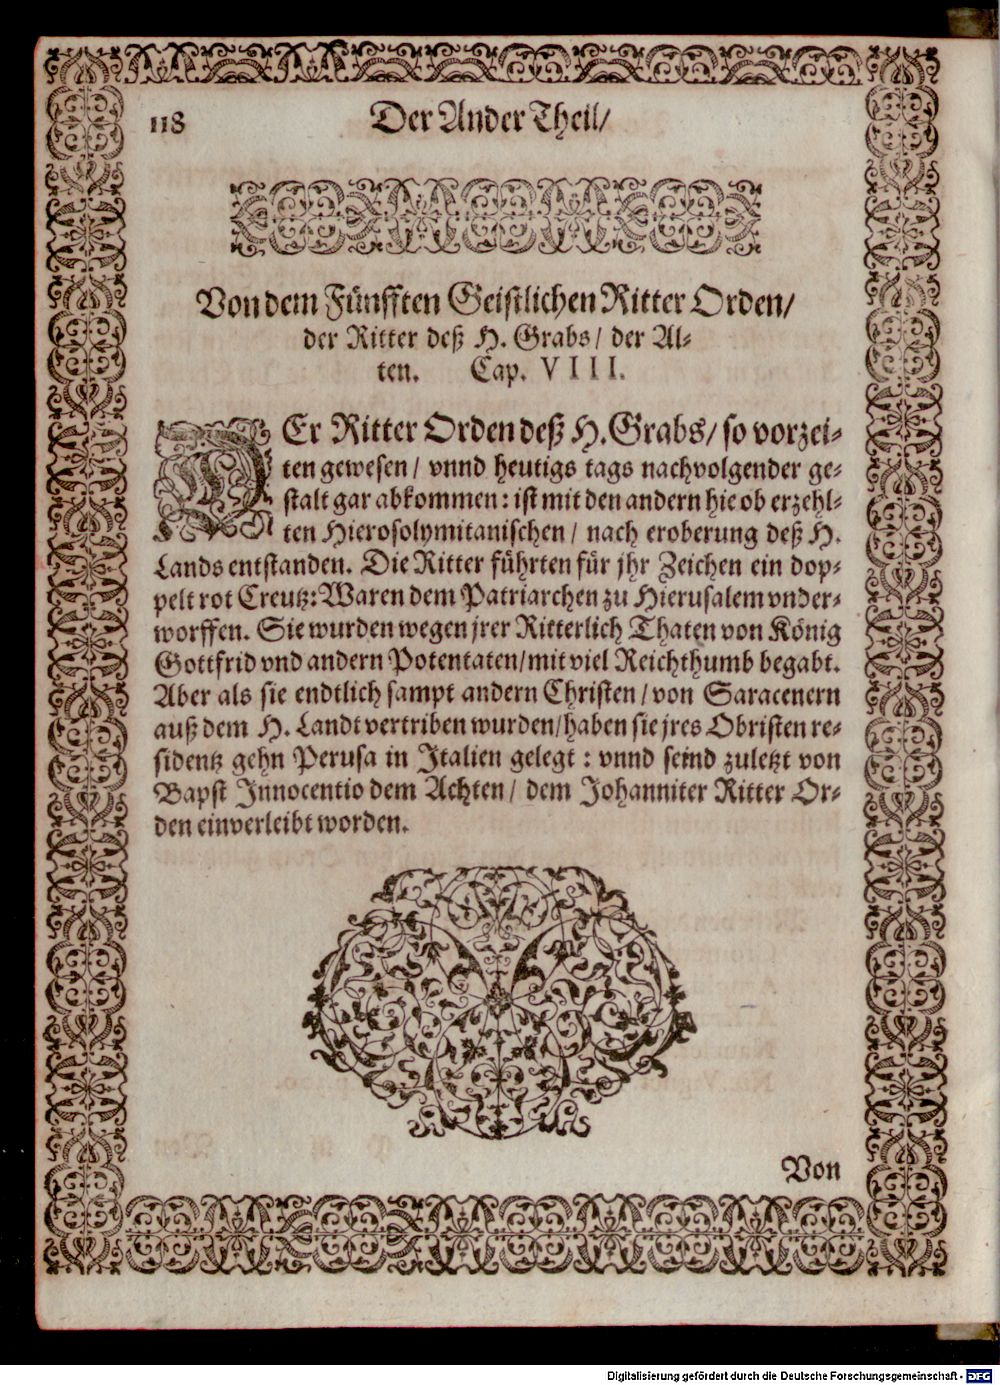 118
Der Ander Theil/
Von dem Fünfften Geistlichen Ritter Orden/
der Ritter deß H. Grabs/ der Al-
ten. Cap. VIII.
DEr Ritter Orden deß H. Grabs/ so vorzei-
ten gewesen/ vnnd heutigs tags nachvolgender ge-
stalt gar abkommen: ist mit den andern hie ob erzehl-
ten Hierosolymitanischen/ nach eroberung deß H.
Lands entstanden. Die Ritter führten für jhr Zeichen ein dop-
pelt rot Creutz: Waren dem Patriarchen zu Hierusalem vnder-
worffen. Sie wurden wegen jrer Ritterlich Thaten von König
Gottfrid vnd andern Potentaten/ mit viel Reichthumb begabt.
Aber als sie endtlich sampt andern Christen/ von Saracenern
auß dem H. Landt vertriben wurden/ haben sie jres Obristen re-
sidentz gehn Perusa in Italien gelegt: vnnd seind zuletzt von
Bapst Innocentio dem Achten/ dem Johanniter Ritter Or-
den einverleibt worden.
Von
Digitalisierung gefördert durch die Deutsche Forschungsgemeinschaft - DFG